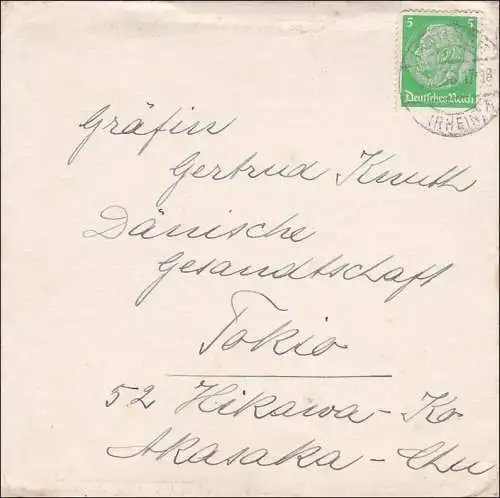 5 5
Deutsches Reich
(RHEIN)
Gräfin
Gertrud Knuth
Dänische
Gesandtschaft
Tokio
52 Hikawa-Ko
Akasaka-Chu